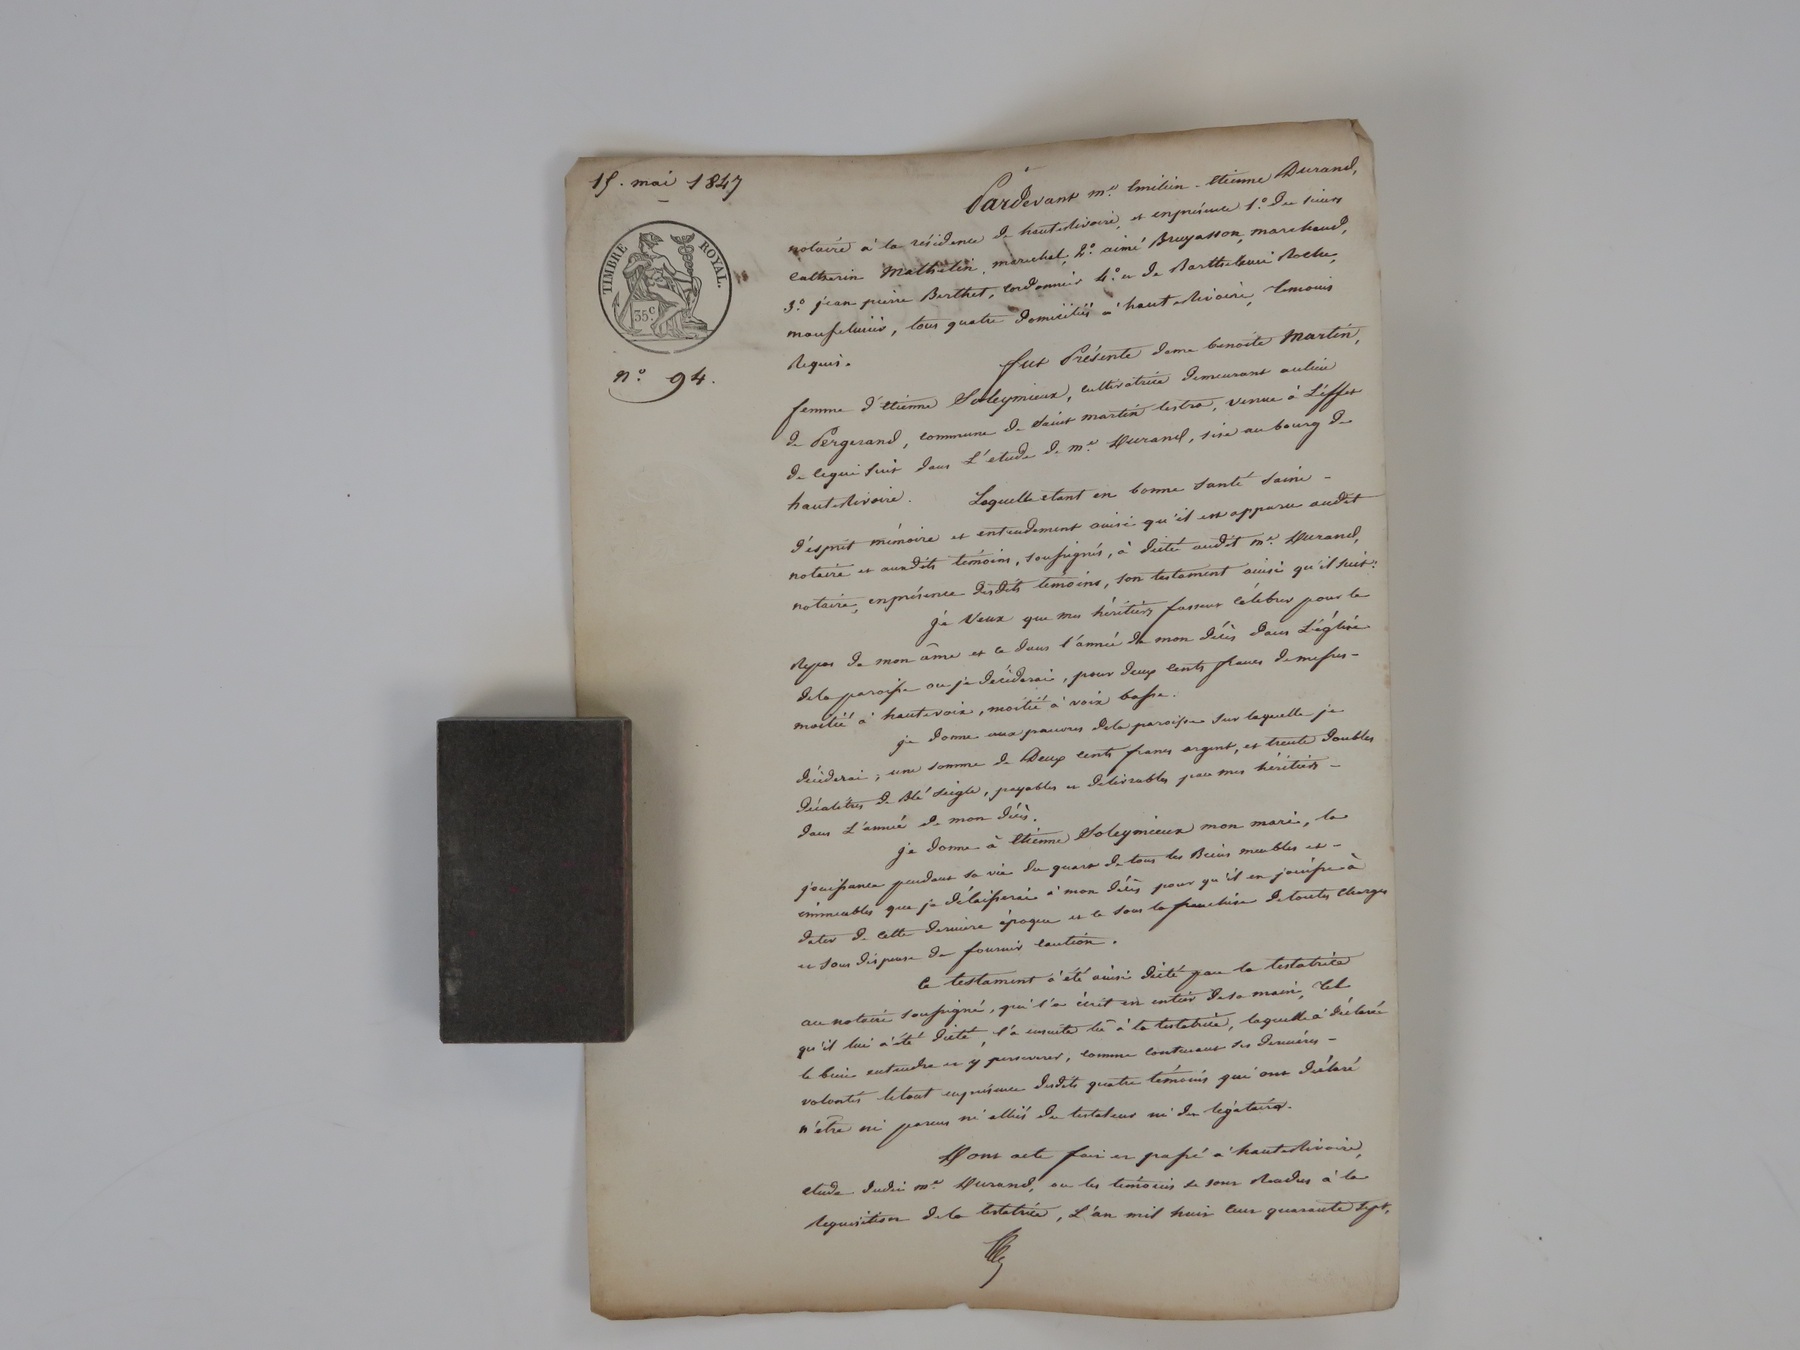 15. mai 1847
TIMBRE ROYAL.
35c
n.o 94.
Pardevant m.e Emilien-Etienne Durand,
notaire à la résidence de haute Rivoire, et en présence 1.o des sieurs
Catherin Mathelin, marechal, 2.o aimé Bruyasson, marchand,
3.o jean pierre Berthet, cordonnier 4.o et de Barthelemi Roche,
menuisier, tous quatre domiciliés à haute Rivoire, temoins
Requis.
fut Présente dame benoite Martin,
femme d'Etienne Soleymieux, cultivatrice demeurant au lieu
de Pergerand, commune de Saint martin lestra, venue à L'éffet
de cequi suit dans L'etude de m.e Durand, sise au bourg de
haute Rivoire. Laquelle etant en bonne santé saine
d'esprit mémoire et entendement ainsi qu'il est apparu audit
notaire et auxdits témoins, soussignés, à dicté audit m.e Durand,
notaire, en présence desdits témoins, son testament ainsi qu'il suit:
je veux que mes héritiers fassent célébrer pour le
Repos de mon âme et ce dans l'année de mon décès dans L'église
dela paroisse ou je décéderai, pour deux cents francs de messes
moitié à haute voix, moitié à voix basse.
je donne aux pauvres dela paroisse sur laquelle je
décéderai, une somme de Deux cents francs argent, et trente doubles
décalitres de Blé seigle, payables et délivrables par mes héritiers
dans L'année de mon décès.
je donne à Etienne Soleymieux mon mari, la
jouissance pendant sa vie du quart de tous les Biens meubles et
immeubles que je délaisserai à mon décès pour qu'il en jouisse à
dater de cette dernière époque et ce sous la franchise de toutes charges
et sous dispense de fournir caution.
Ce testament à été ainsi dicté par la testatrice
au notaire soussigné, qui l'a écrit en entier de sa main, tel
qu'il lui à été dicté, l'a ensuite lû à la testatrice, laquelle à déclaré
le bien entendre et y perseverer, comme contenant ses dernières
volontés letout en présence desdits quatre témoins qui ont déclaré
n'être ni parens ni alliés du testateur ni des légataires.
Dont acte fait et passé à haute Rivoire,
etude dudit m.e Durand, ou les témoins se sont Rendus à la
Requisition dela testatrice, L'an mil huit cent quarante sept,